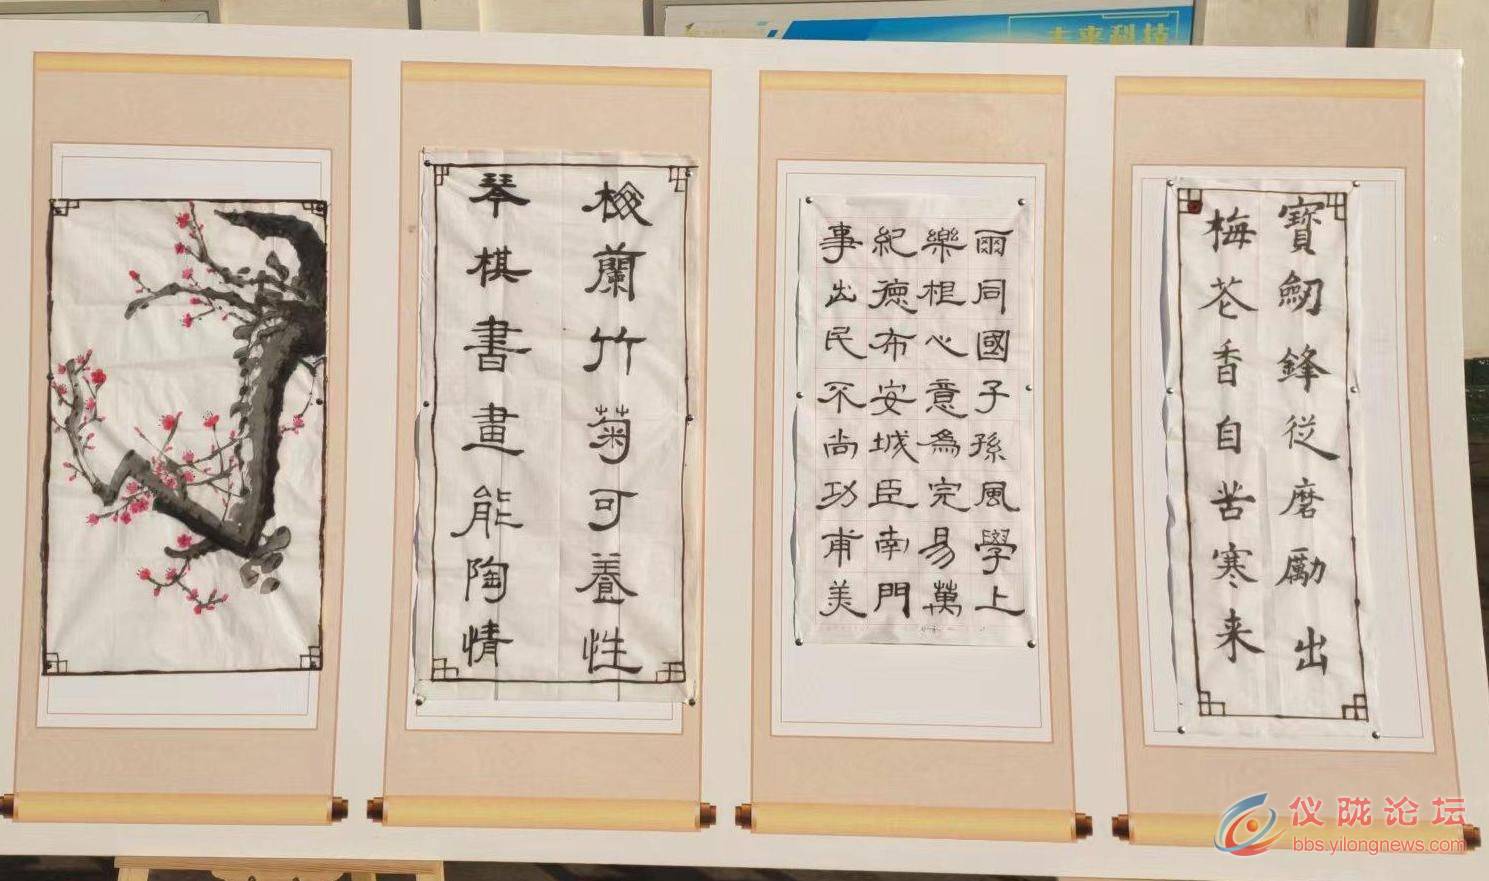 未来科技
梅蘭竹菊可養性
琴棋書畫能陶情
雨同國子孫風學上
樂相心意為完易萬
紀德布安城臣南門
事出民不尚功甫美
寶劒鋒従磨勵出
梅花香自苦寒来
仪陇论坛
bbs.yilongnews.com